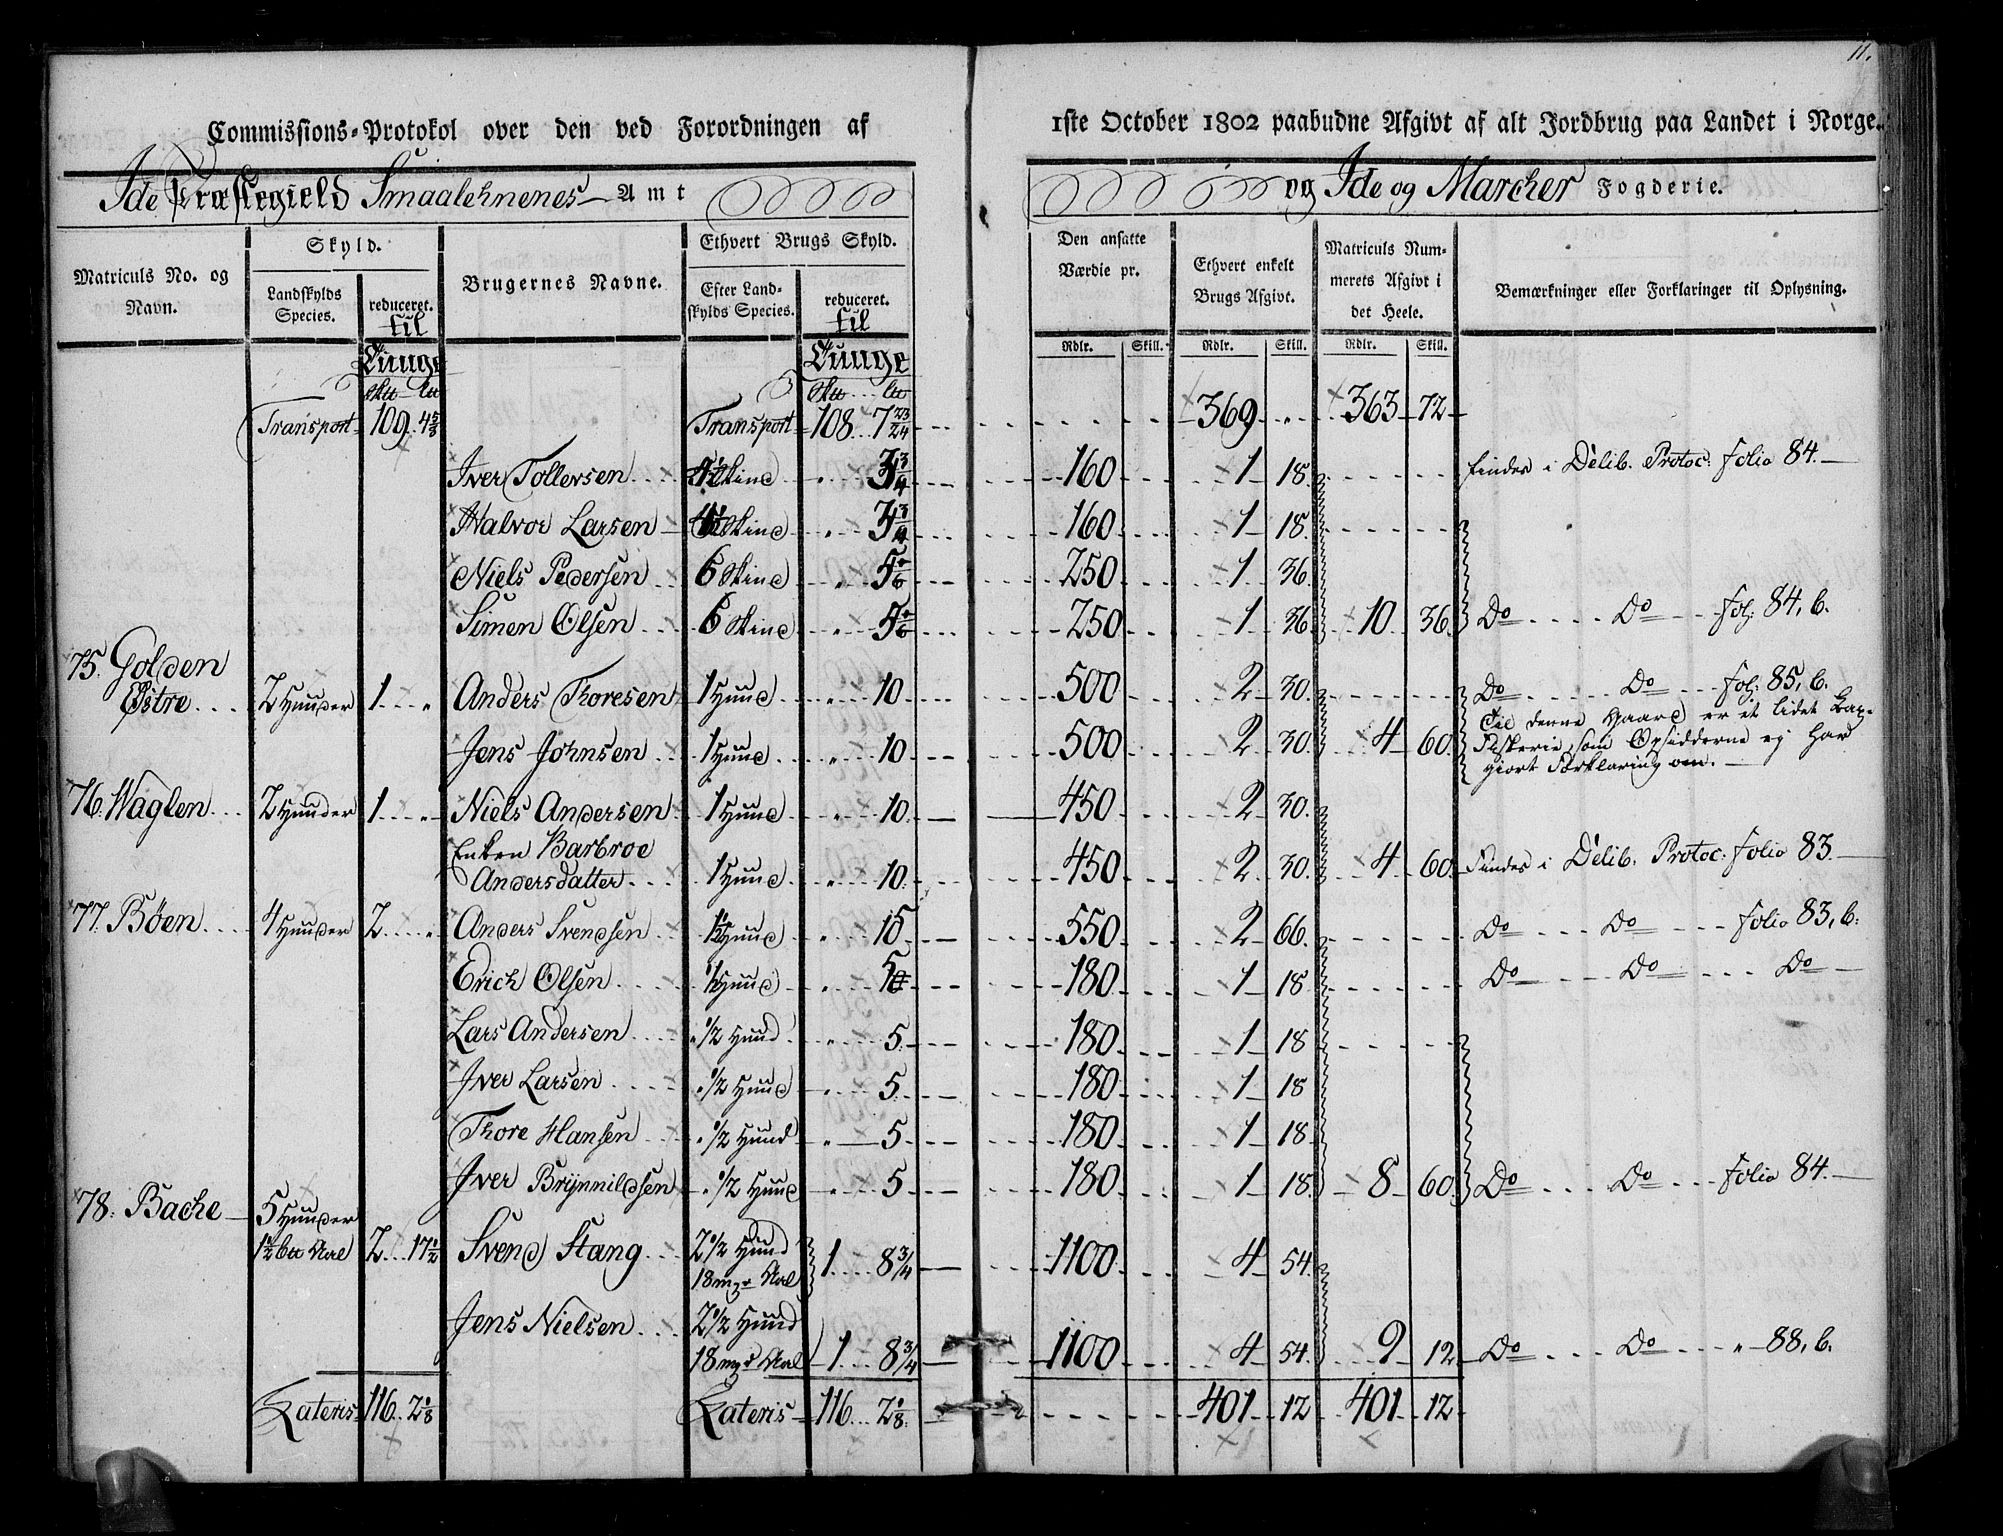 11.
Commissions-Protokol over den ved Forordningen af
1ste October 1802 paabudne Afgivt af alt Jordbrug paa Landet i Norge.
Ide Præstegield Smaalehnenes Amt
og Ide og Marcher Fogderie.
Matriculs No. og Navn.
Skyld.
Landskylds Species.
reduceret. til
Brugernes Navne.
Ethvert Brugs Skyld.
Efter Landskylds Species.
reduceret. til
Den ansatte Værdie pr.
Ethvert enkelt Brugs Afgivt.
Matriculs Nummerets Afgivt i det Heele.
Bemærkninger eller Forklaringer til Oplysning.
Tunge Tunge
Rdlr. Skill. Rdlr. Skill. Rdlr. Skill.
Transport 109 4 5/8 Transport 108 7 23/24 369 363 72
Iver Tollevsen 4½ Skind 3 3/4 160 1 18 findes i Delib. Protoc: folio 84.
Halvor Larsen 4½ Skind 3 3/4 160 1 18
Niels Pedersen 6 Skind 5 250 1 36
Simen Olsen 6 Skind 5 250 1 36 10 36 Do Do fol: 84, b.
75. Golden
Østre 2 Hunder 1 Anders Thoresen 1 Hund 10 500 2 30 Do Do fol: 85, b.
Til denne Gaard er et lidet
Jens Johnsen 1 Hund 10 500 2 30 4 60 Fiskerie som Opsidderne ej har
giort Forklaring om.
76. Waglen 2 Hunder 1 Niels Andersen 1 Hund 10 450 2 30
Enken Barbroe
Andersdatter 1 Hund 10 450 2 30 4 60 Findes i Delib. Protoc: folio 83.
77. Böen 4 Hunder 2 Anders Svendsen 1½ Hund 15 550 2 66 Do Do folio 83, b.
Erich Olsen ½ Hund 5 180 1 18 Do Do Do
Lars Andersen ½ Hund 5 180 1 18
Iver Larsen ½ Hund 5 180 1 18
Thore Hansen ½ Hund 5 180 1 18
Iver Brynnildsen ½ Hund 5 180 1 18 8 60 Do Do folio 84.
78. Bache 5 Hunder
1½ Sal 2 17½ Svend Stang 2½ Hund
18 mrr Sal 1 8 3/4 1100 4 54
Jens Nielsen 2½ Hund
18 mrr Sal 1 8 3/4 1100 4 54 9 12 Do Do " 88, b.
Lateris 116 2 1/8 Lateris 116 2 1/8 401 12 401 12